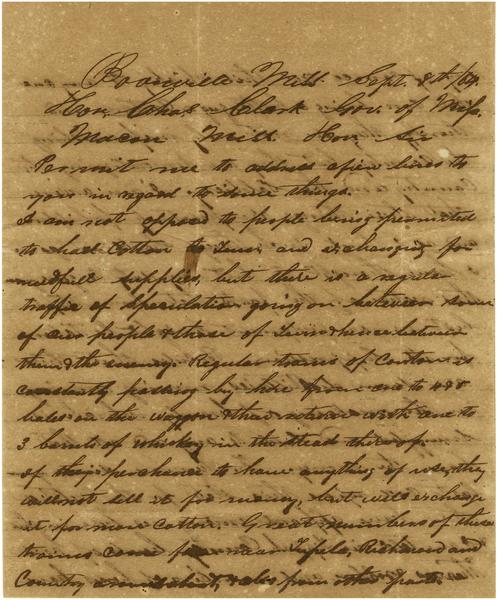 Booneville Miss Sept. 8th/64
Hon. Chas Clark Gov. of Miss,
Macon Miss Hon Sir
Permit me to address a few lines to
you in regard to some things.
I am not opposed to people being permitted
to haul Cotton to Tenn, and exchanging for
needfull supplies, but there is a regular
traffic of Speculation going on between some
of our people & those of Tenn & hence between
them & the enemy. Regular trains of Cotton is
constantly passing by here from one to 4 & 5
bales on the waggon & their return with one to
3 barrels of whiskey in the stead thereof.
if they perchance to have anything of use, they
will not sell it for money, but will exchange
it for more Cotton. Great numbers of these
trains come from near Tupelo, Richmond and
Country & also from other parts.